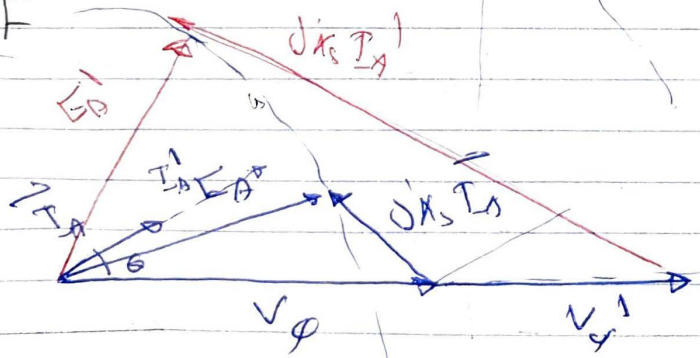 jXs IA'
EA'
IA' EA
IA
jXs IA
θ
Vφ
Vφ'